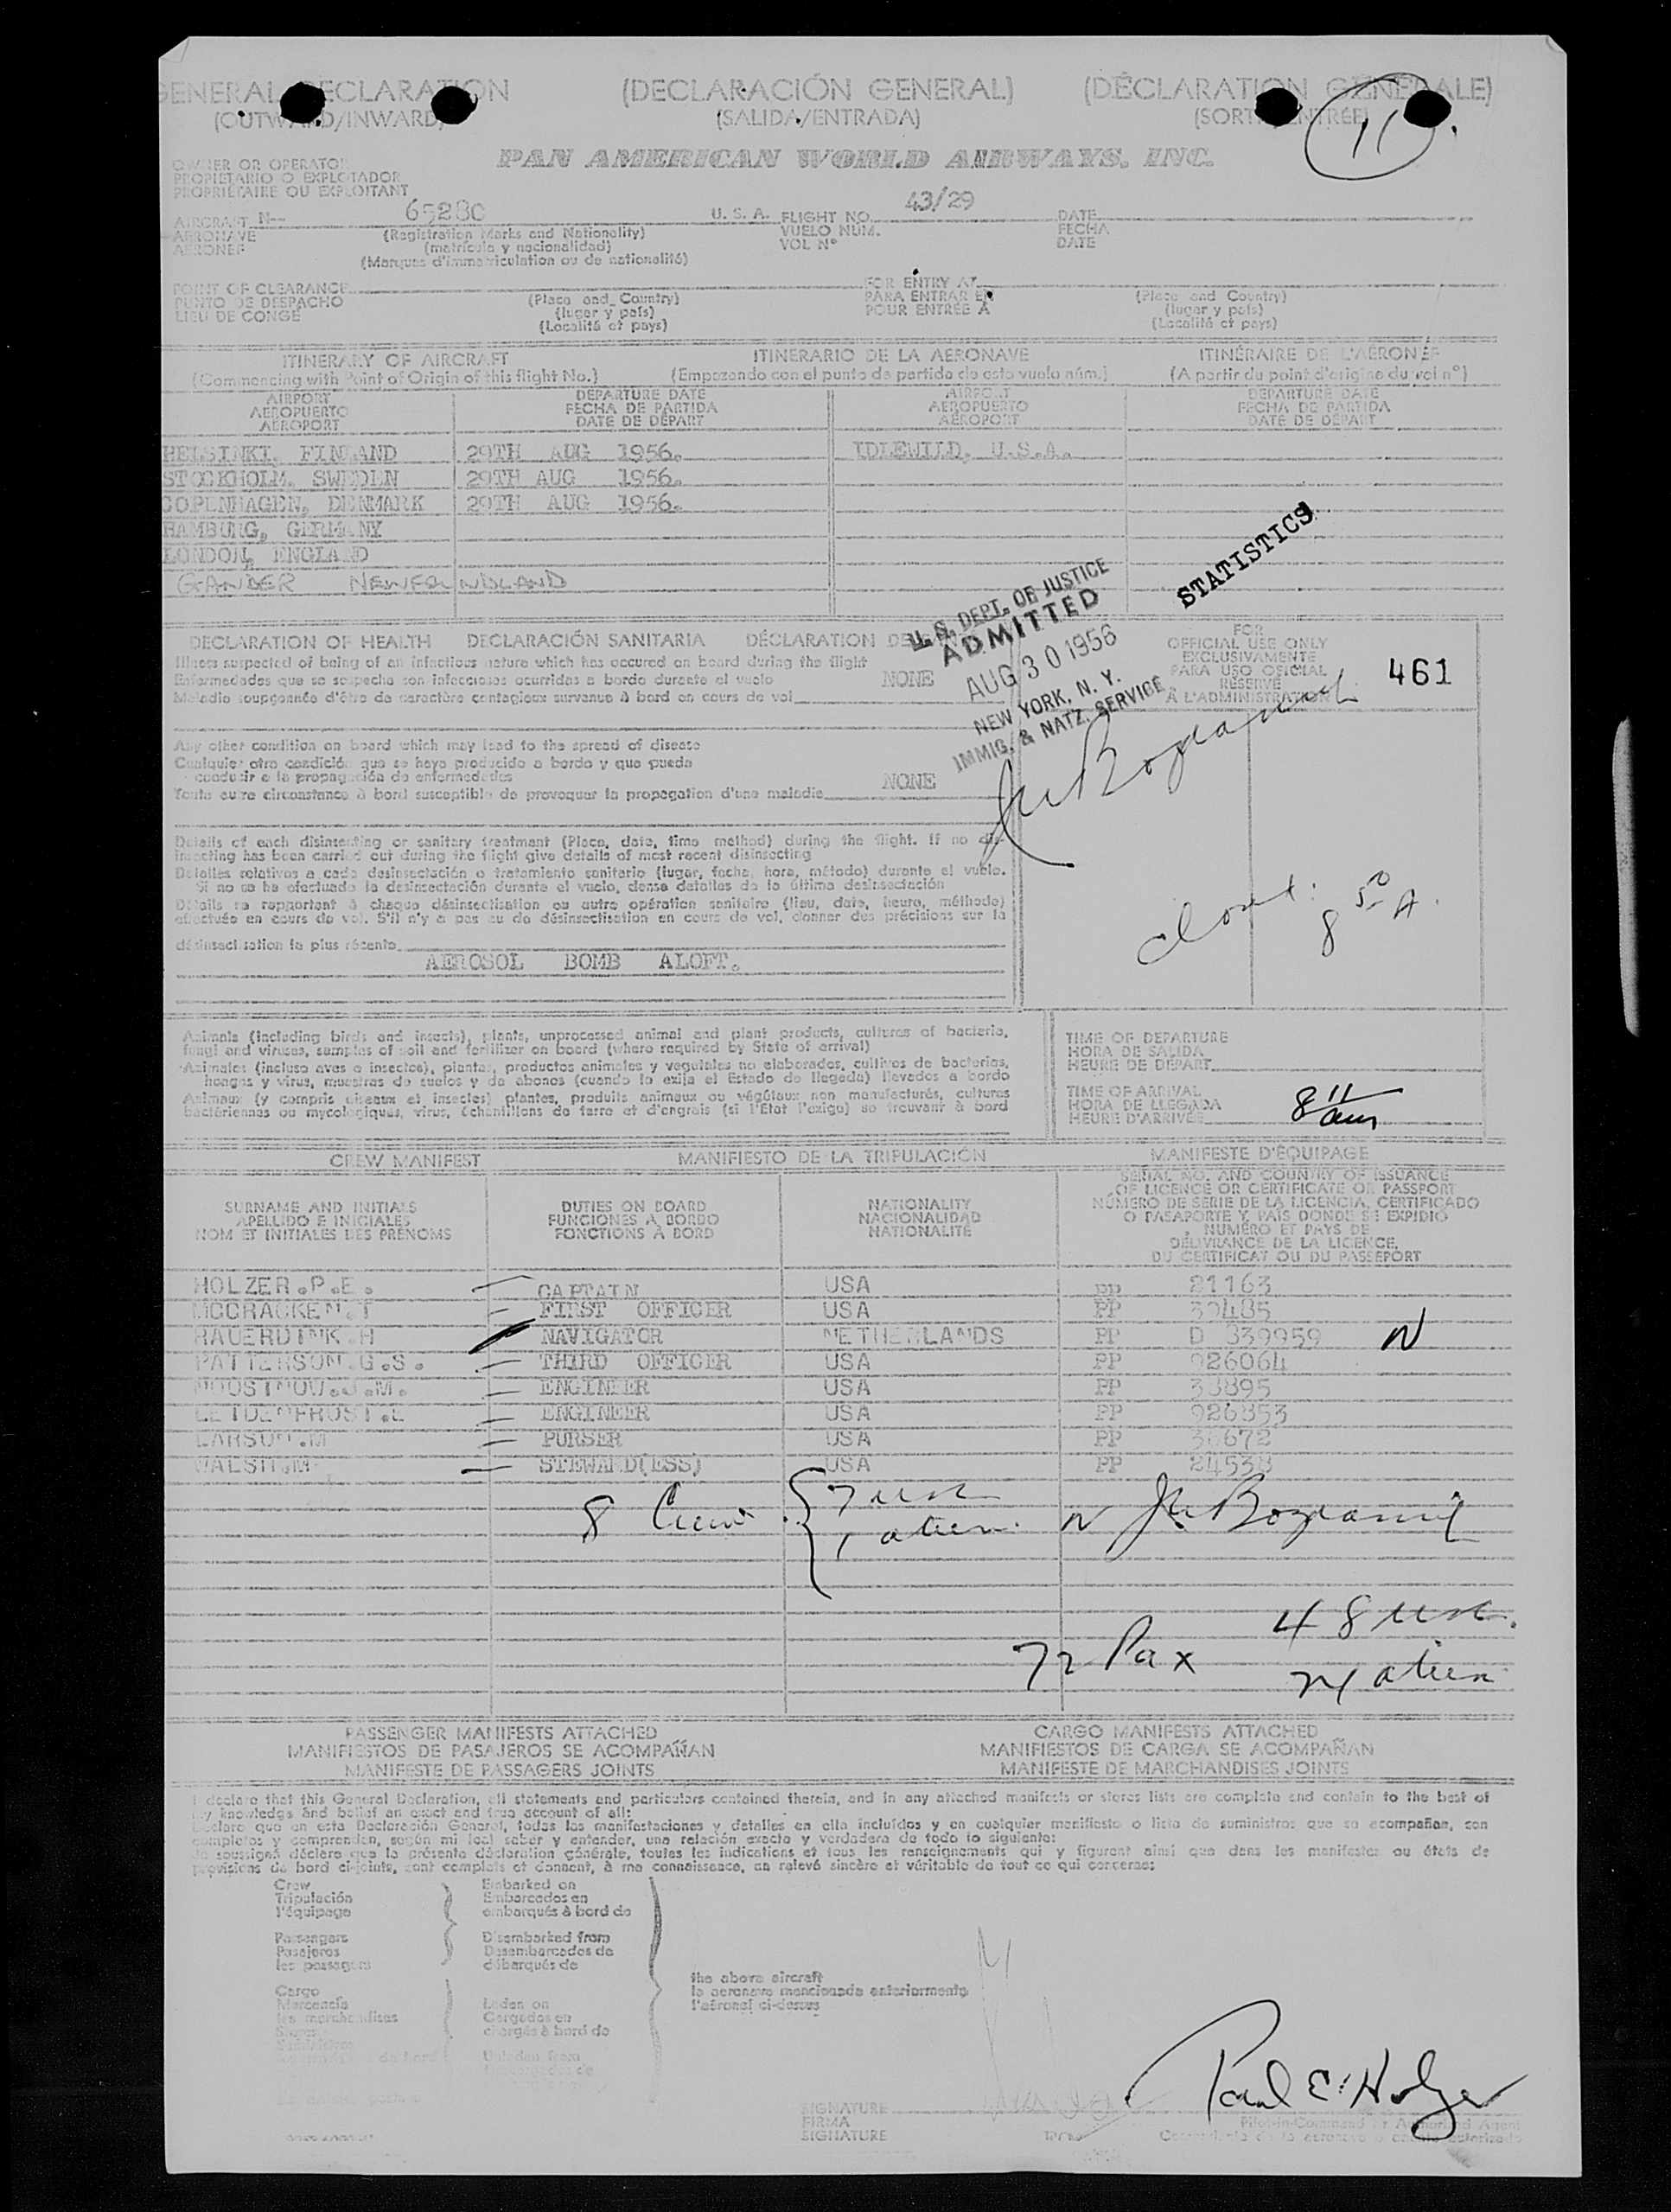 GENERAL DECLARATION (DECLARACIÓN GENERAL) (DÉCLARATION GÉNÉRALE)
(OUTWARD/INWARD) (SALIDA/ENTRADA) (SORTIE/ENTRÉE)
11
OWNER OR OPERATOR
PROPIETARIO O EXPLOTADOR
PROPRIÉTAIRE OU EXPLOITANT
PAN AMERICAN WORLD AIRWAYS, INC.
AIRCRAFT N-- 65280 U. S. A. FLIGHT NO. 43/29 DATE
AERONAVE (Registration Marks and Nationality) VUELO NÚM. FECHA
AÉRONEF (matrícula y nacionalidad) VOL N° DATE
(Marques d'immatriculation ou de nationalité)
POINT OF CLEARANCE FOR ENTRY AT
PUNTO DE DESPACHO (Place and Country) PARA ENTRAR EN (Place and Country)
LIEU DE CONGÉ (lugar y país) POUR ENTRÉE À (lugar y país)
(Localité et pays) (Localité et pays)
ITINERARY OF AIRCRAFT ITINERARIO DE LA AERONAVE ITINÉRAIRE DE L'AÉRONEF
(Commencing with Point of Origin of this flight No.) (Empezando con el punto de partida de este vuelo núm.) (A partir du point d'origine du vol n°)
AIRPORT DEPARTURE DATE AIRPORT DEPARTURE DATE
AEROPUERTO FECHA DE PARTIDA AEROPUERTO FECHA DE PARTIDA
AÉROPORT DATE DE DÉPART AÉROPORT DATE DE DÉPART
HELSINKI, FINLAND 29TH AUG 1956. IDLEWILD, U.S.A.
STOCKHOLM, SWEDEN 29TH AUG 1956.
COPENHAGEN, DENMARK 29TH AUG 1956.
HAMBURG, GERMANY
LONDON, ENGLAND
GANDER NEWFOUNDLAND
STATISTICS
U. S. DEPT. OF JUSTICE
ADMITTED
AUG 30 1956
NEW YORK, N. Y.
IMMIG. & NATZ. SERVICE
DECLARATION OF HEALTH DECLARACIÓN SANITARIA DÉCLARATION DE
Illness suspected of being of an infectious nature which has occured on board during the flight
Enfermedades que se sospecha son infecciosas ocurridas a bordo durante el vuelo NONE
Maladie soupçonnée d'être de caractère contagieux survenue à bord en cours de vol
FOR
OFFICIAL USE ONLY
EXCLUSIVAMENTE
PARA USO OFICIAL
RÉSERVÉ
À L'ADMINISTRATION
461
Any other condition on board which may lead to the spread of disease
Cualquier otra condición que se haya producido a bordo y que pueda
conducir a la propagación de enfermedades NONE
Toute autre circonstance à bord susceptible de provoquer la propagation d'une maladie
Details of each disinsecting or sanitary treatment (Place, date, time method) during the flight. If no dis-
insecting has been carried out during the flight give details of most recent disinsecting
Detalles relativos a cada desinsectación o tratamiento sanitario (lugar, fecha, hora, método) durante el vuelo.
Si no se ha efectuado la desinsectación durante el vuelo, dense detalles de la última desinsectación
Détails se rapportant à chaque désinsectisation ou autre opération sanitaire (lieu, date, heure, méthode)
effectuée en cours de vol. S'il n'y a pas eu de désinsectisation en cours de vol, donner des précisions sur la
désinsectisation la plus récente
8 50 A.
AEROSOL BOMB ALOFT.
Animals (including birds and insects), plants, unprocessed animal and plant products, cultures of bacteria,
fungi and viruses, samples of soil and fertilizer on board (where required by State of arrival)
Animales (incluso aves e insectos), plantas, productos animales y vegetales no elaborados, cultivos de bacterias,
hongos y virus, muestras de suelos y de abonos (cuando lo exija el Estado de llegada) llevados a bordo
Animaux (y compris oiseaux et insectes) plantes, produits animaux ou végétaux non manufacturés, cultures
bactériennes ou mycologiques, virus, échantillons de terre et d'engrais (si l'État l'exige) se trouvant à bord
TIME OF DEPARTURE
HORA DE SALIDA
HEURE DE DÉPART
TIME OF ARRIVAL
HORA DE LLEGADA
HEURE D'ARRIVÉE 8 11 am
CREW MANIFEST MANIFIESTO DE LA TRIPULACIÓN MANIFESTE D'ÉQUIPAGE
SURNAME AND INITIALS
APELLIDO E INICIALES
NOM ET INITIALES DES PRÉNOMS
DUTIES ON BOARD
FUNCIONES A BORDO
FONCTIONS À BORD
NATIONALITY
NACIONALIDAD
NATIONALITÉ
SERIAL NO. AND COUNTRY OF ISSUANCE
OF LICENCE OR CERTIFICATE OR PASSPORT
NÚMERO DE SERIE DE LA LICENCIA, CERTIFICADO
O PASAPORTE Y PAÍS DONDE SE EXPIDIÓ
NUMÉRO ET PAYS DE
DÉLIVRANCE DE LA LICENCE,
DU CERTIFICAT OU DU PASSEPORT
HOLZER.P.E. CAPTAIN USA PP 21163
MCCRACKEN.T FIRST OFFICER USA PP 39485
RAUERDINK.H NAVIGATOR NETHERLANDS PP D 839959 N
PATTERSON.G.S. THIRD OFFICER USA PP 926064
J.M. ENGINEER USA PP 38895
LEIDENFROST.E ENGINEER USA PP 926353
LARSON.M PURSER USA PP 36672
WALSH.M STEWARD(ESS) USA PP 24538
8 Crew 7 usc
1 alien N
48 usc.
72 Pax 24 alien
PASSENGER MANIFESTS ATTACHED CARGO MANIFESTS ATTACHED
MANIFIESTOS DE PASAJEROS SE ACOMPAÑAN MANIFIESTOS DE CARGA SE ACOMPAÑAN
MANIFESTE DE PASSAGERS JOINTS MANIFESTE DE MARCHANDISES JOINTS
I declare that this General Declaration, all statements and particulars contained therein, and in any attached manifests or stores lists are complete and contain to the best of
my knowledge and belief an exact and true account of all:
Declaro que en esta Declaración General, todas las manifestaciones y detalles en ella incluídos y en cualquier manifiesto o lista de suministros que se acompañan, son
completos y comprenden, según mi leal saber y entender, una relación exacta y verdadera de todo lo siguiente:
Je soussigné déclare que la présente déclaration générale, toutes les indications et tous les renseignements qui y figurent ainsi que dans les manifestes ou états de
provisions de bord ci-joints, sont complets et donnent, à ma connaissance, un relevé sincère et véritable de tout ce qui concerne:
Crew Embarked on
Tripulación Embarcados en
l'équipage embarqués à bord de
Passengers Disembarked from
Pasajeros Desembarcados de
les passagers débarqués de
the above aircraft
la aeronave mencionada anteriormente
l'aéronef ci-dessus
Cargo
Mercancía Laden on
les marchandises Cargados en
Stores chargés à bord de
Unladen from
Paul E. Holzer
SIGNATURE
FIRMA
SIGNATURE
Pilot-in-Command or Authorized Agent